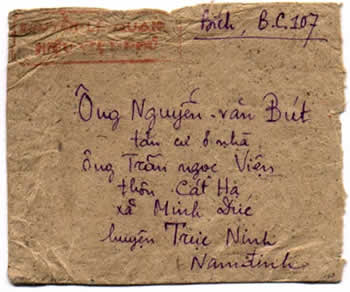 Bích, B.C.107
Ông Nguyễn-văn Bút
tản cư ở nhà
ông Trần ngọc Viện
thôn Cát Hạ
xã Minh Đức
huyện Trực Ninh
Namđịnh